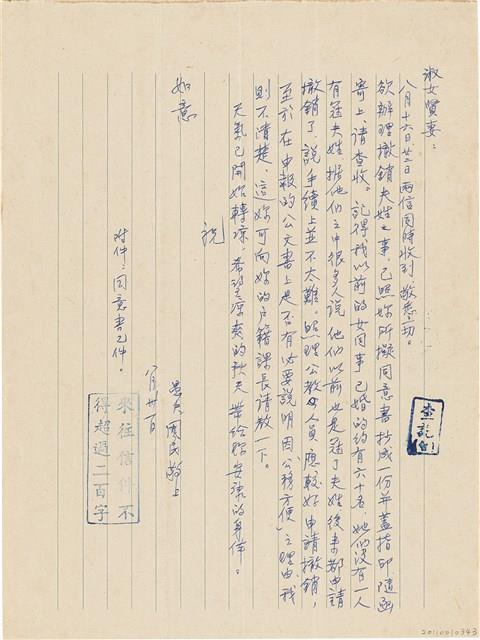 淑女賢妻：
八月十六日、廿三日兩信同時收到，敬悉一切。
欲辦理撤銷夫姓之事，已照妳所擬同意書抄成一份并蓋指印隨函
寄上，請查收。記得我以前的女同事已婚的約有六十名，她們沒有一人
有冠夫姓，據他們之中很多人說，他們以前也是冠了夫姓後來都申請
撤銷了，說手續上並不太難。照理公教人員應較好申請撤銷，
至於在申報的公文書上是否有必要說明因「公務方便」之理由，我
則不清楚，這妳可向妳的戶籍課長請教一下。
天氣已開始轉涼，希望涼爽的秋天帶給妳安康的身体。
祝
如意
愚夫 國民敬上
八月卅一日
附件：同意書乙件。
查訖
來往信件不
得超過二百字
20110010343